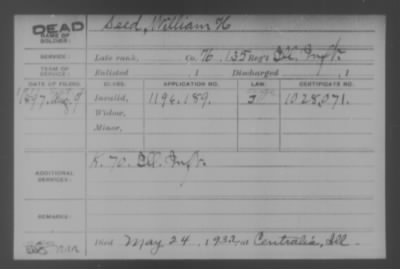 DEAD
NAME OF SOLDIER: Seed, William H
SERVICE: Late rank, Co. H, 135 Reg't Ill. Inft.
TERM OF SERVICE: Enlisted , 1 Discharged , 1
DATE OF FILING. CLASS. APPLICATION NO. LAW. CERTIFICATE NO.
1897. Aug. 9 Invalid, 1196.189. 1028.071.
Widow,
Minor,
ADDITIONAL SERVICES: K. 70. Ill. Inft.
REMARKS:
Died May 24, 1932, at Centralia, Ill.